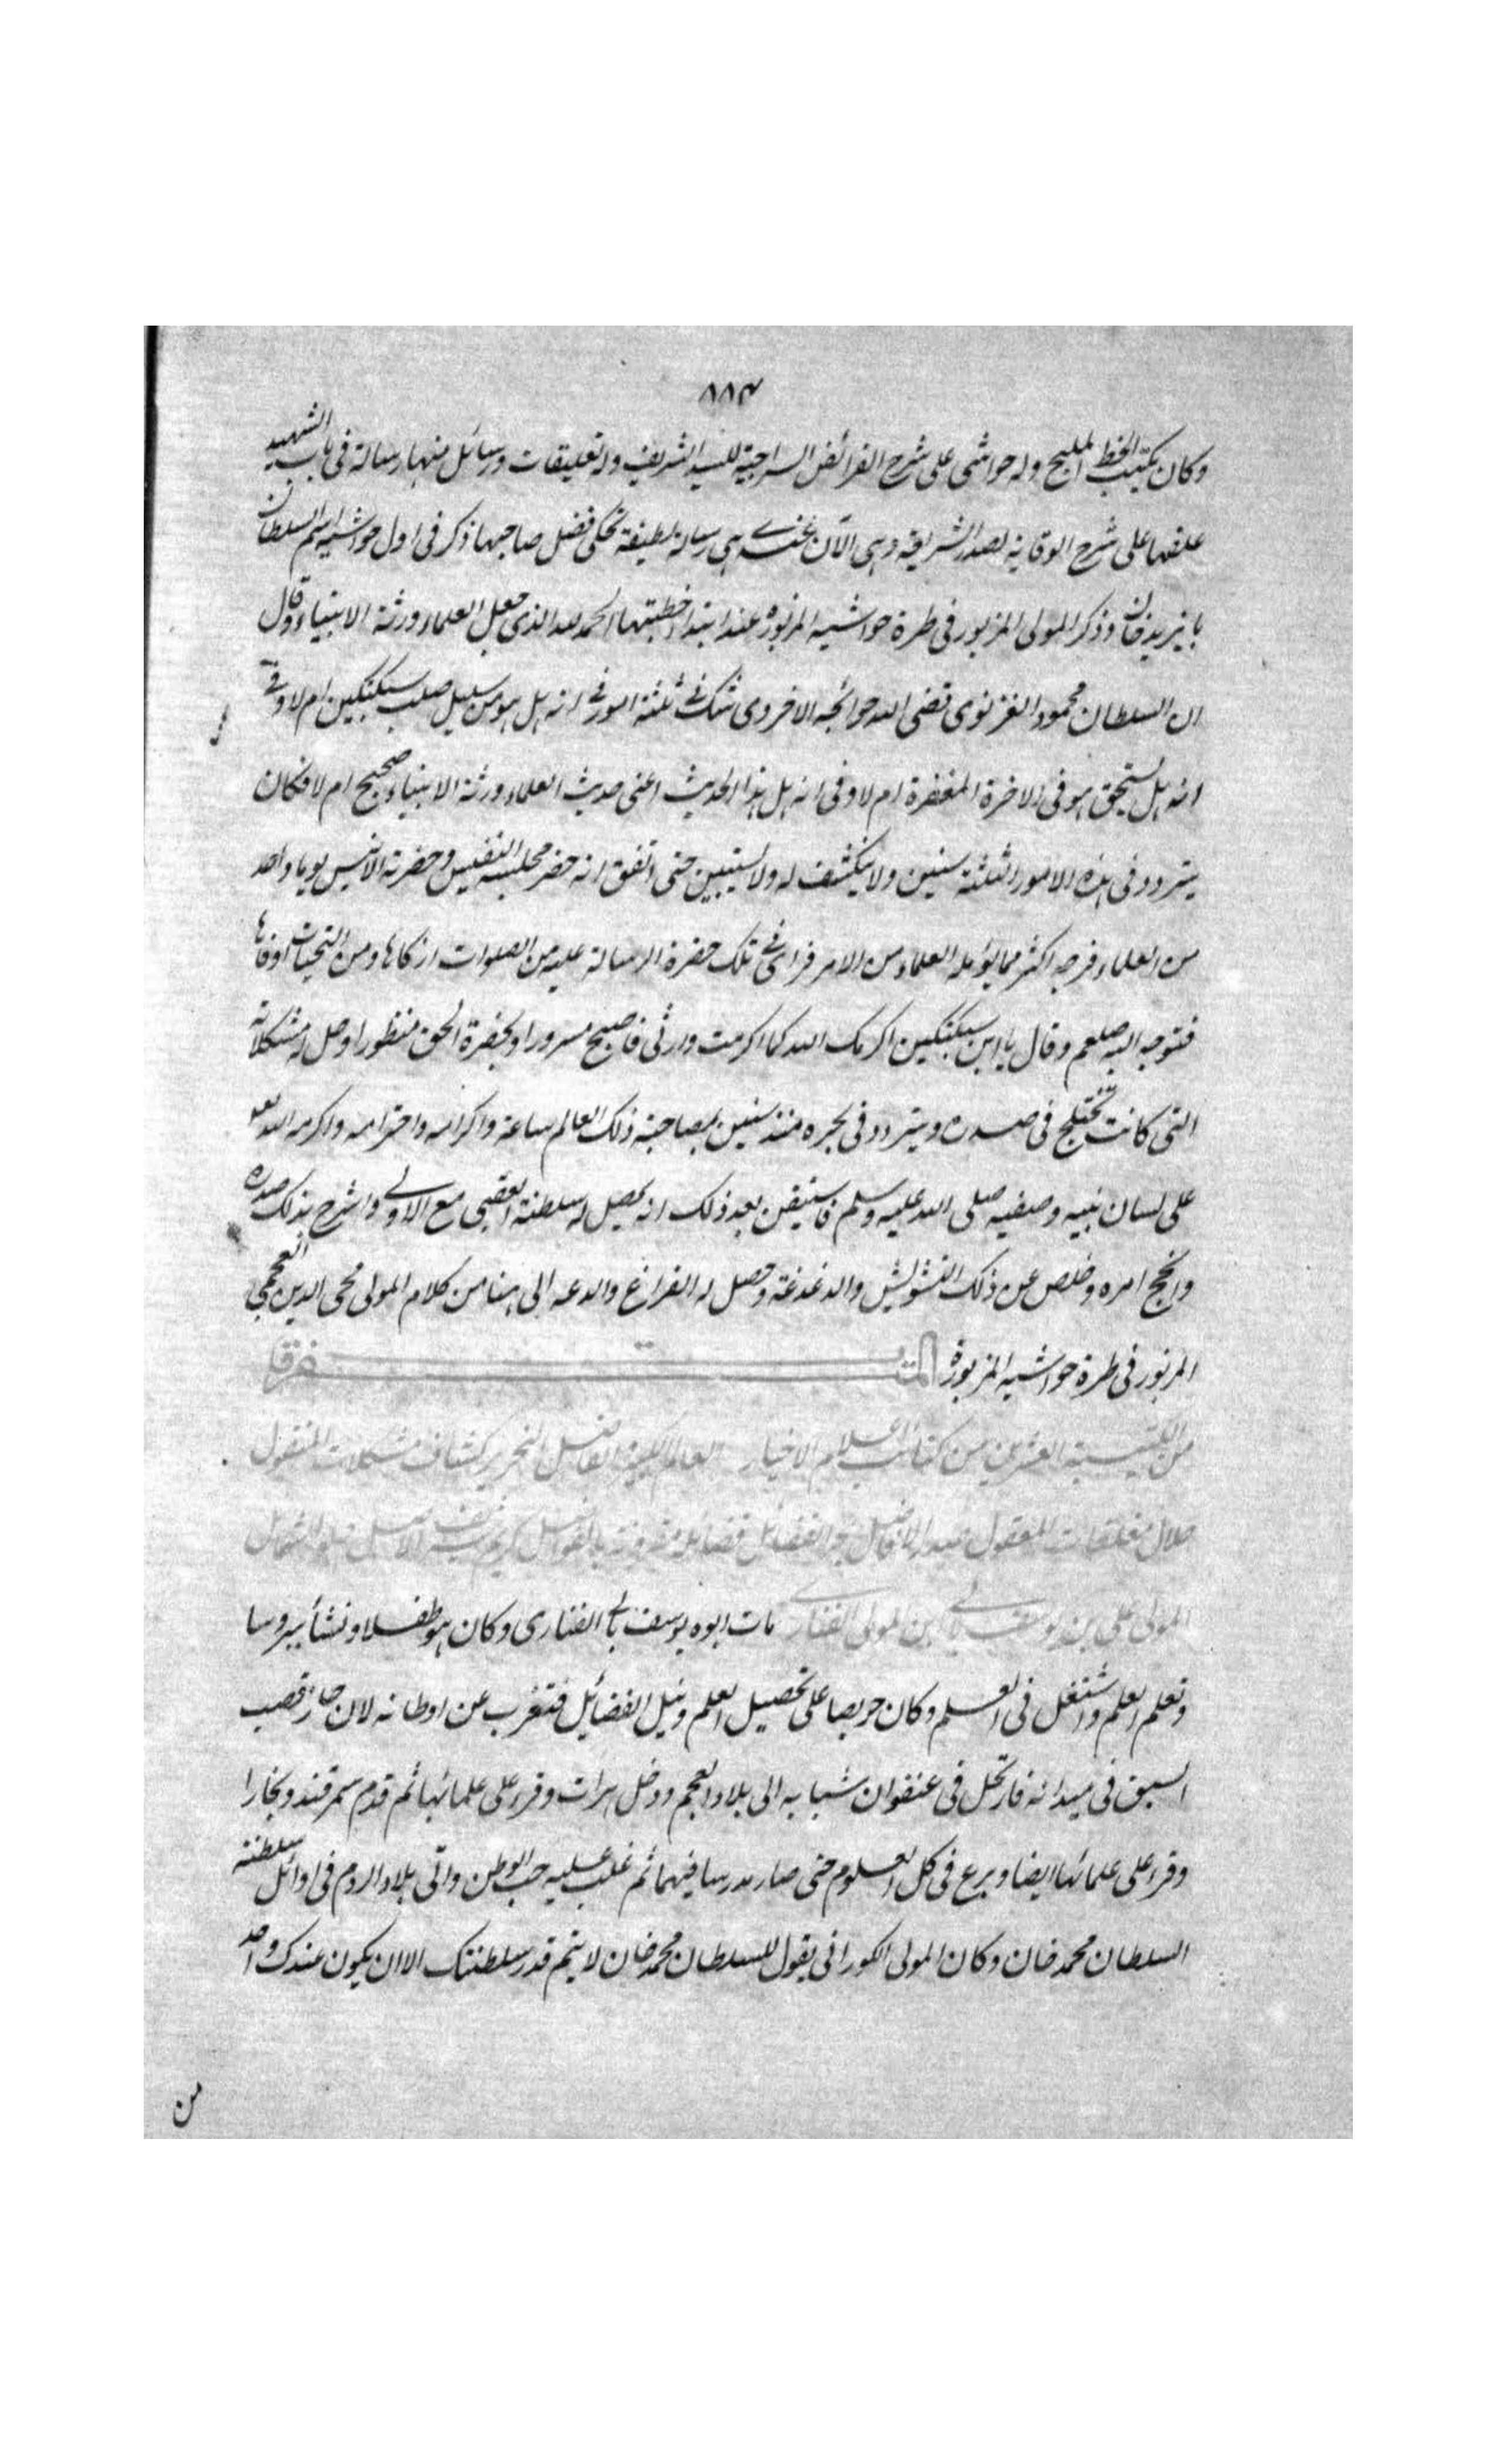 ٨٨٣
وكان يكتب الخط المليح وله حواشى على شرح الفرائض السراجية للسيد الشريف وله تعليقات ورسائل منها رسالة فى باب الشهيد
علقها على شرح الوقاية لصدر الشريعة وهى الآن عندى هى رسالة لطيفة تحكى فضل صاحبها ذكر فى اول حواشيه اسم السلطان
بايزيد خان وذكر المولى المزبور فى طرة حواشيه المزبورة عند ابتدا خطبتها الحمد لله الذى جعل العلماء ورثة الانبياء وقال
ان السلطان محمود الغزنوى قضى الله حوائجه الاخروى شك فى ثلثة امور فى انه هل هو من سليل صلب سبكتكين ام لا وفى
انه هل يستحق هو فى الاخرة المغفرة ام لا وفى انه هل هذا الحديث اعنى حديث العلماء ورثة الانبياء صحيح ام لا فكان
يتردد فى هذه الامور الثلثة سنين ولا ينكشف له ولا يستبين حتى اتفق انه حضر مجلسه النفيس وحضرته الانيس يوما واحد
من العلماء فرجه اكثر مما يؤمله العلماء من الامر فراى فى تلك حضرة الرسالة عليه من الصلوات ازكاها ومن التحيات اوفاها
فتوجه اليه صلعم وقال يا ابن سبكتكين اكرمك الله كما اكرمت وارثى فاصبح مسرورا وبحضرة الحق منظورا وحل له مشكلاته
التى كانت تختلج فى صدره ويتردد فى بحره منذ سنين بمصاحبة ذلك العالم ساعة واكرامه واحترامه واكرمه الله تعه
على لسان نبيه وصفيه صلى الله عليه وسلم فاستيقن بعد ذلك انه يحصل له سلطنة العقبى مع الاولى وانشرح بذلك صدره
وانجح امره وخلص عن ذلك التشويش والدغدغة وحصل له الفراغ والدعه الى هنا من كلام المولى محى الدين العجمى
المزبور فى طرة حواشيه المزبورة المتفرقا
من الكتيبة العشرين من كتائب اعلام الاخيار العالم الكبير الفاضل النحرير كشاف مشكلات المنقول
حلال مغلقات المعقول صدر الافاضل بحر الفضائل فضائله مقرونة بالفواضل كريم شريف الاصل حلو الشمائل
المولى على بن يوسف بالى ابن المولى الفنارى مات ابوه يوسف بالى الفنارى وكان هو طفلا ونشأ ببروسا
وتعلم العلم واشتغل فى العلم وكان حريصا على تحصيل العلم ونيل الفضائل فتغرب عن اوطانه لان حاز قصب
السبق فى ميدانه فارتحل فى عنفوان شبابه الى بلاد العجم ودخل هرات وقرء على علمائها ثم قدم سمرقند وبخارا
وقرء على علمائها ايضا وبرع فى كل العلوم حتى صار مدرسا فيهما ثم غلب عليه حب الوطن واتى بلاد الروم فى اوائل سلطنة
السلطان محمد خان وكان المولى الكورانى يقول للسلطان محمد خان لا يتم قدر سلطنتك الا ان يكون عندك واحد
من